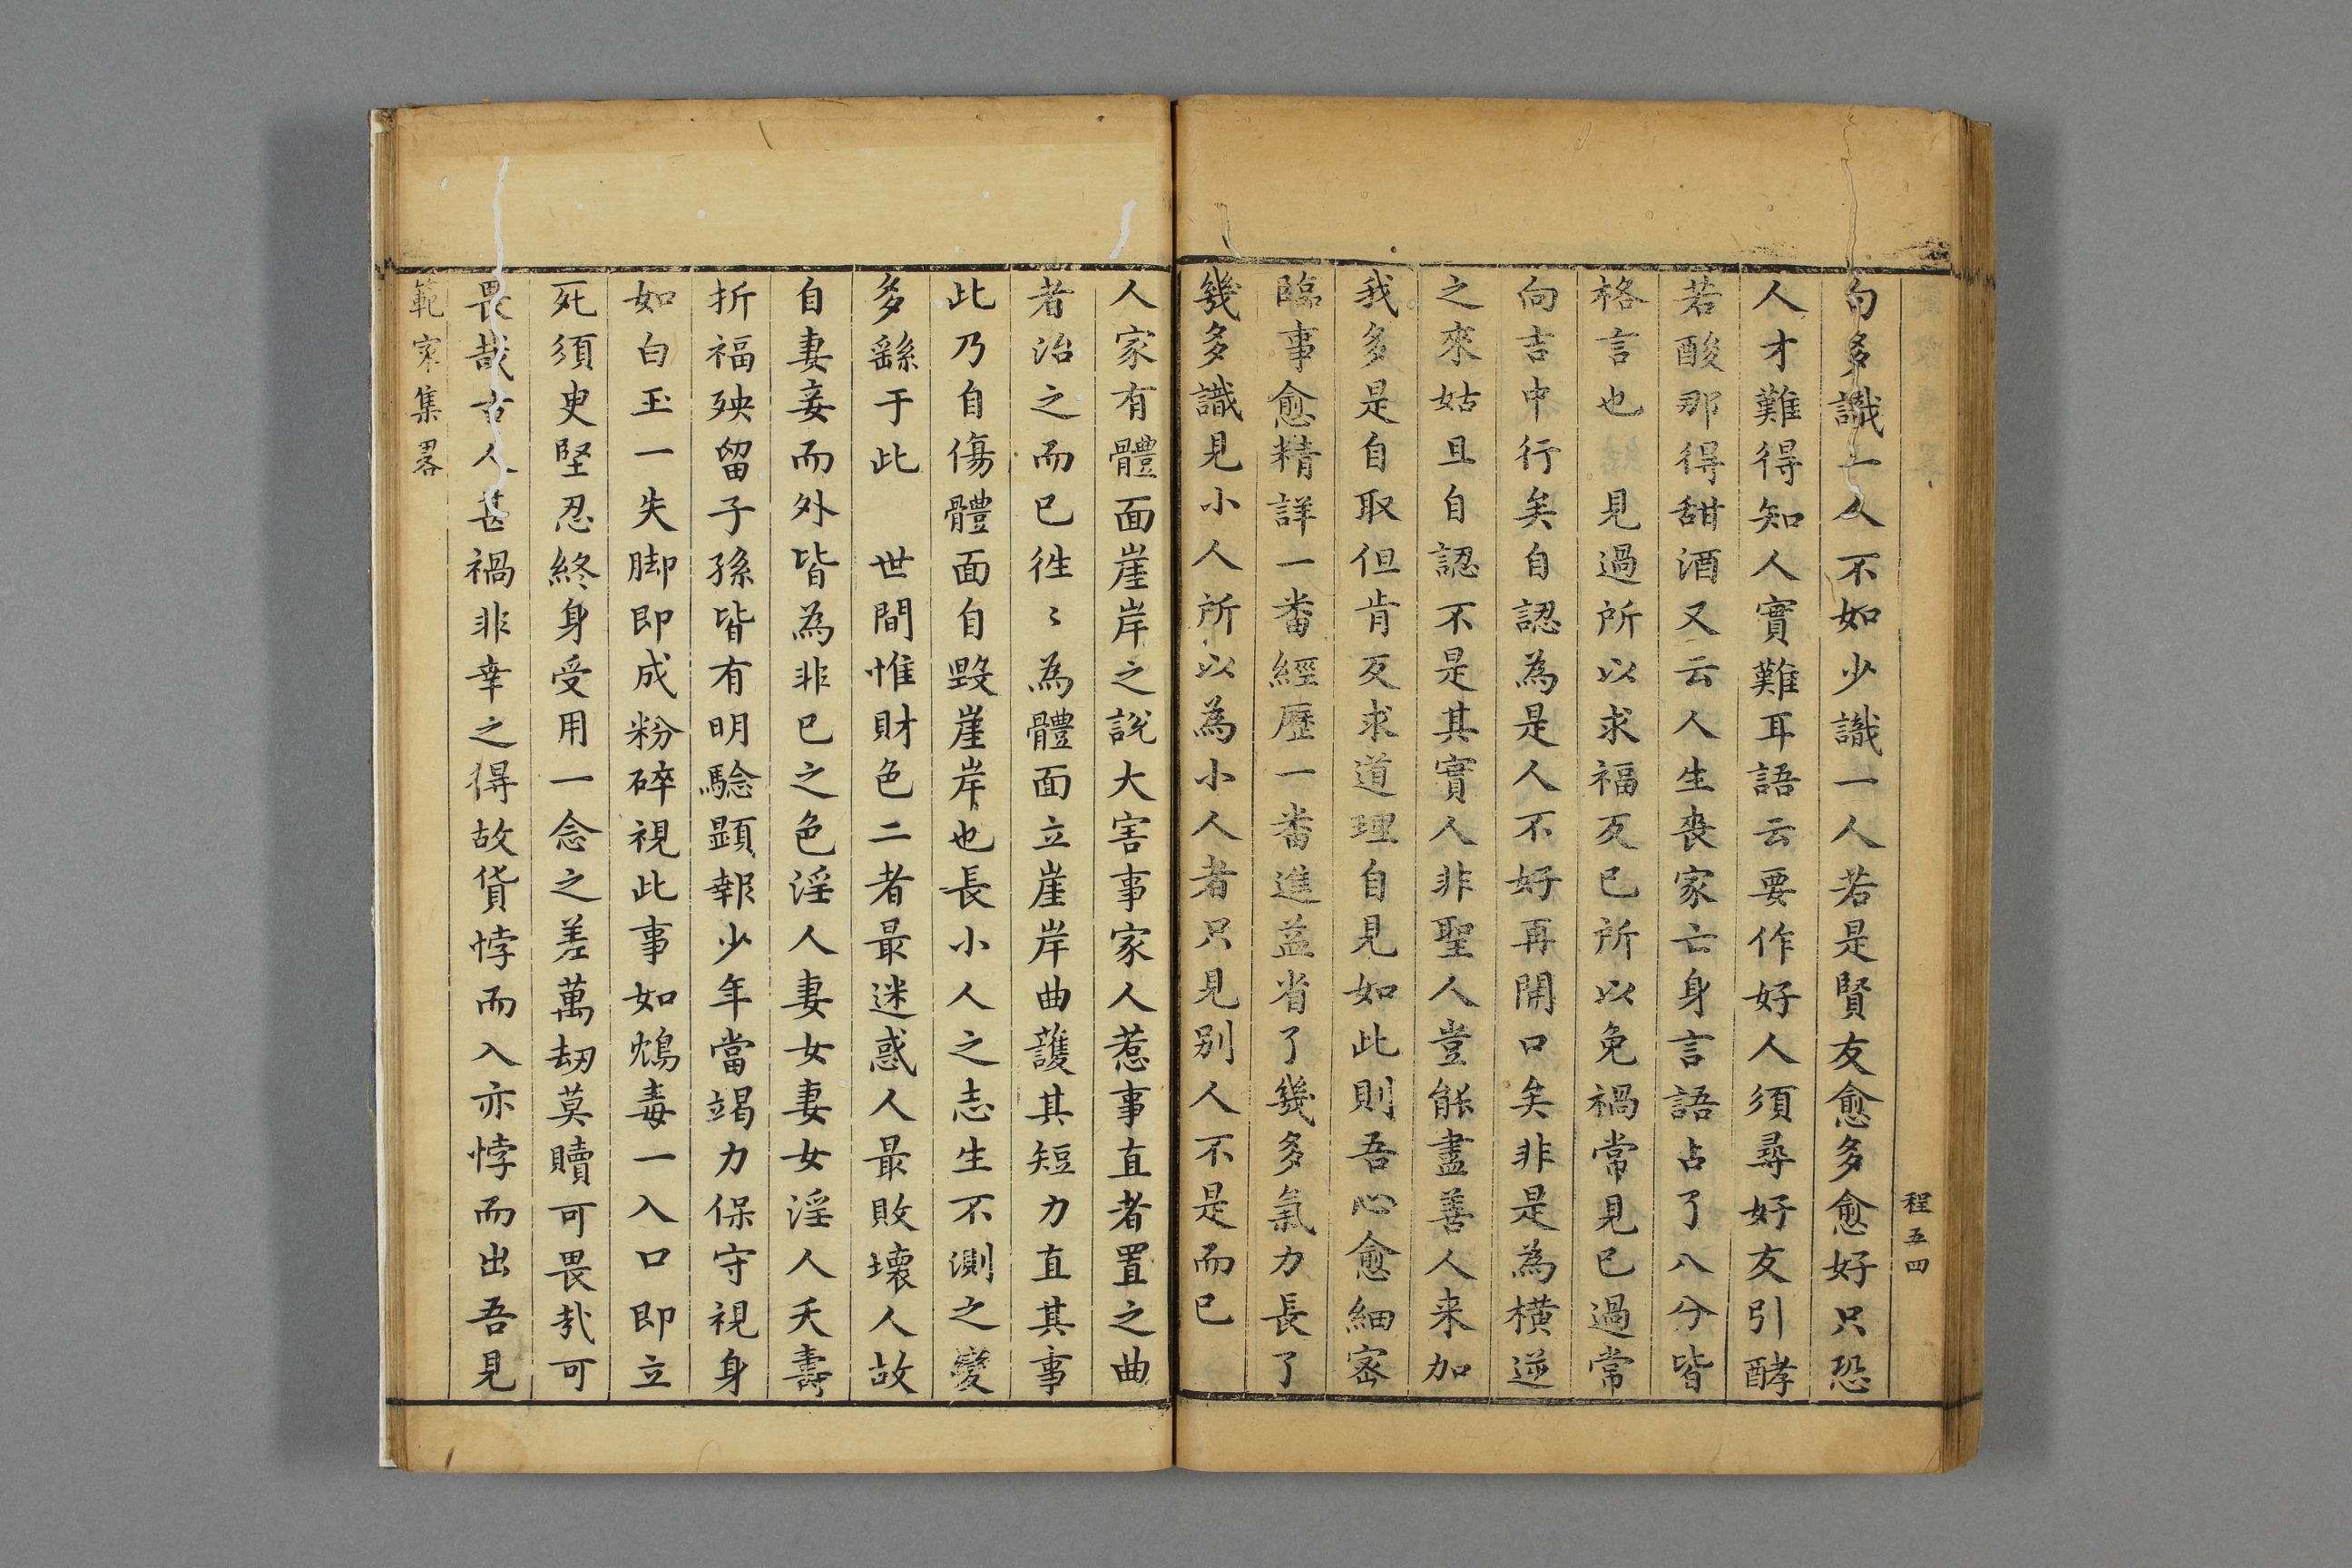 程五四
句多識一人不如少識一人若是賢友愈多愈好只恐
人才難得知人實難耳語云要作好人須尋好友引酵
若酸那得甜酒又云人生喪家亡身言語占了八分皆
格言也　見過所以求福反已所以免禍常見已過常
向吉中行矣自認為是人不好再開口矣非是為橫逆
之來姑且自認不是其實人非聖人豈能盡善人来加
我多是自取但肯反求道理自見如此則吾心愈細密
臨事愈精詳一番經歷一番進益省了幾多氣力長了
幾多識見小人所以為小人者只見别人不是而已
人家有體面崖岸之說大害事家人惹事直者置之曲
者治之而已徃〻為體面立崖岸曲護其短力直其事
此乃自傷體面自毀崖岸也長小人之志生不測之變
多繇于此　世間惟財色二者最迷惑人最敗壞人故
自妻妾而外皆為非已之色淫人妻女妻女淫人夭壽
折福殃留子孫皆有明驗顕報少年當竭力保守視身
如白玉一失脚即成粉碎視此事如鴆毒一入口即立
死須史堅忍終身受用一念之差萬刼莫贖可畏哉可
畏哉古人甚禍非幸之得故貨悖而入亦悖而出吾見
範家集畧